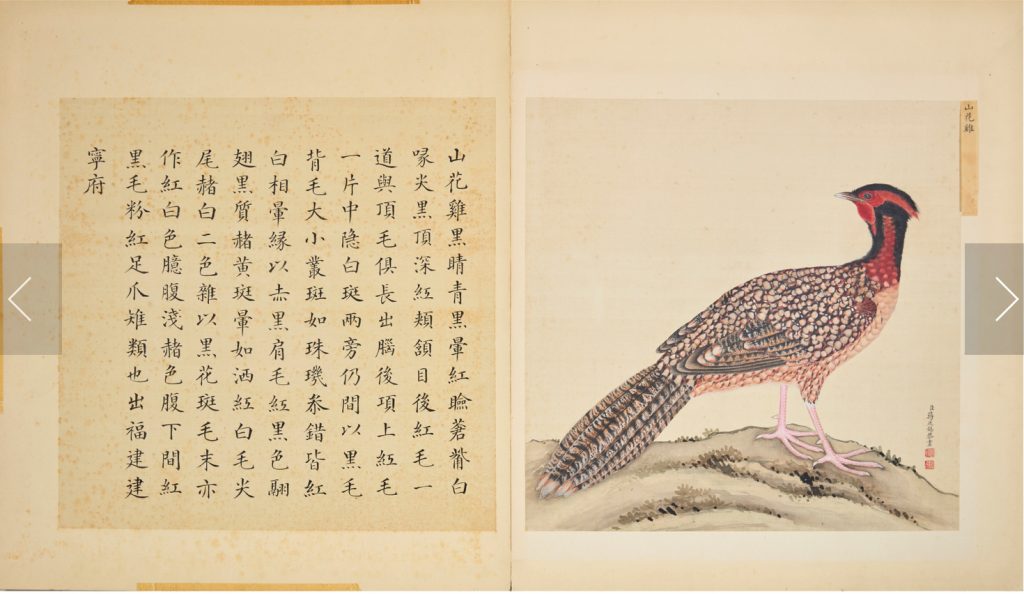 山花雞黑睛青黑暈紅瞼蒼觜白
喙尖黑頂深紅頰頷目後紅毛一
道與頂毛俱長出腦後項上紅毛
一片中隐白斑兩旁仍間以黑毛
背毛大小叢斑如珠璣叅錯皆紅
白相暈緣以赤黑肩毛紅黑色翮
翅黑質赭黄斑暈如洒紅白毛尖
尾赭白二色雜以黑花斑毛末亦
作紅白色臆腹淺赭色腹下間紅
黑毛粉紅足爪雉類也出福建建
寧府
山花雞
臣蔣廷錫恭畫